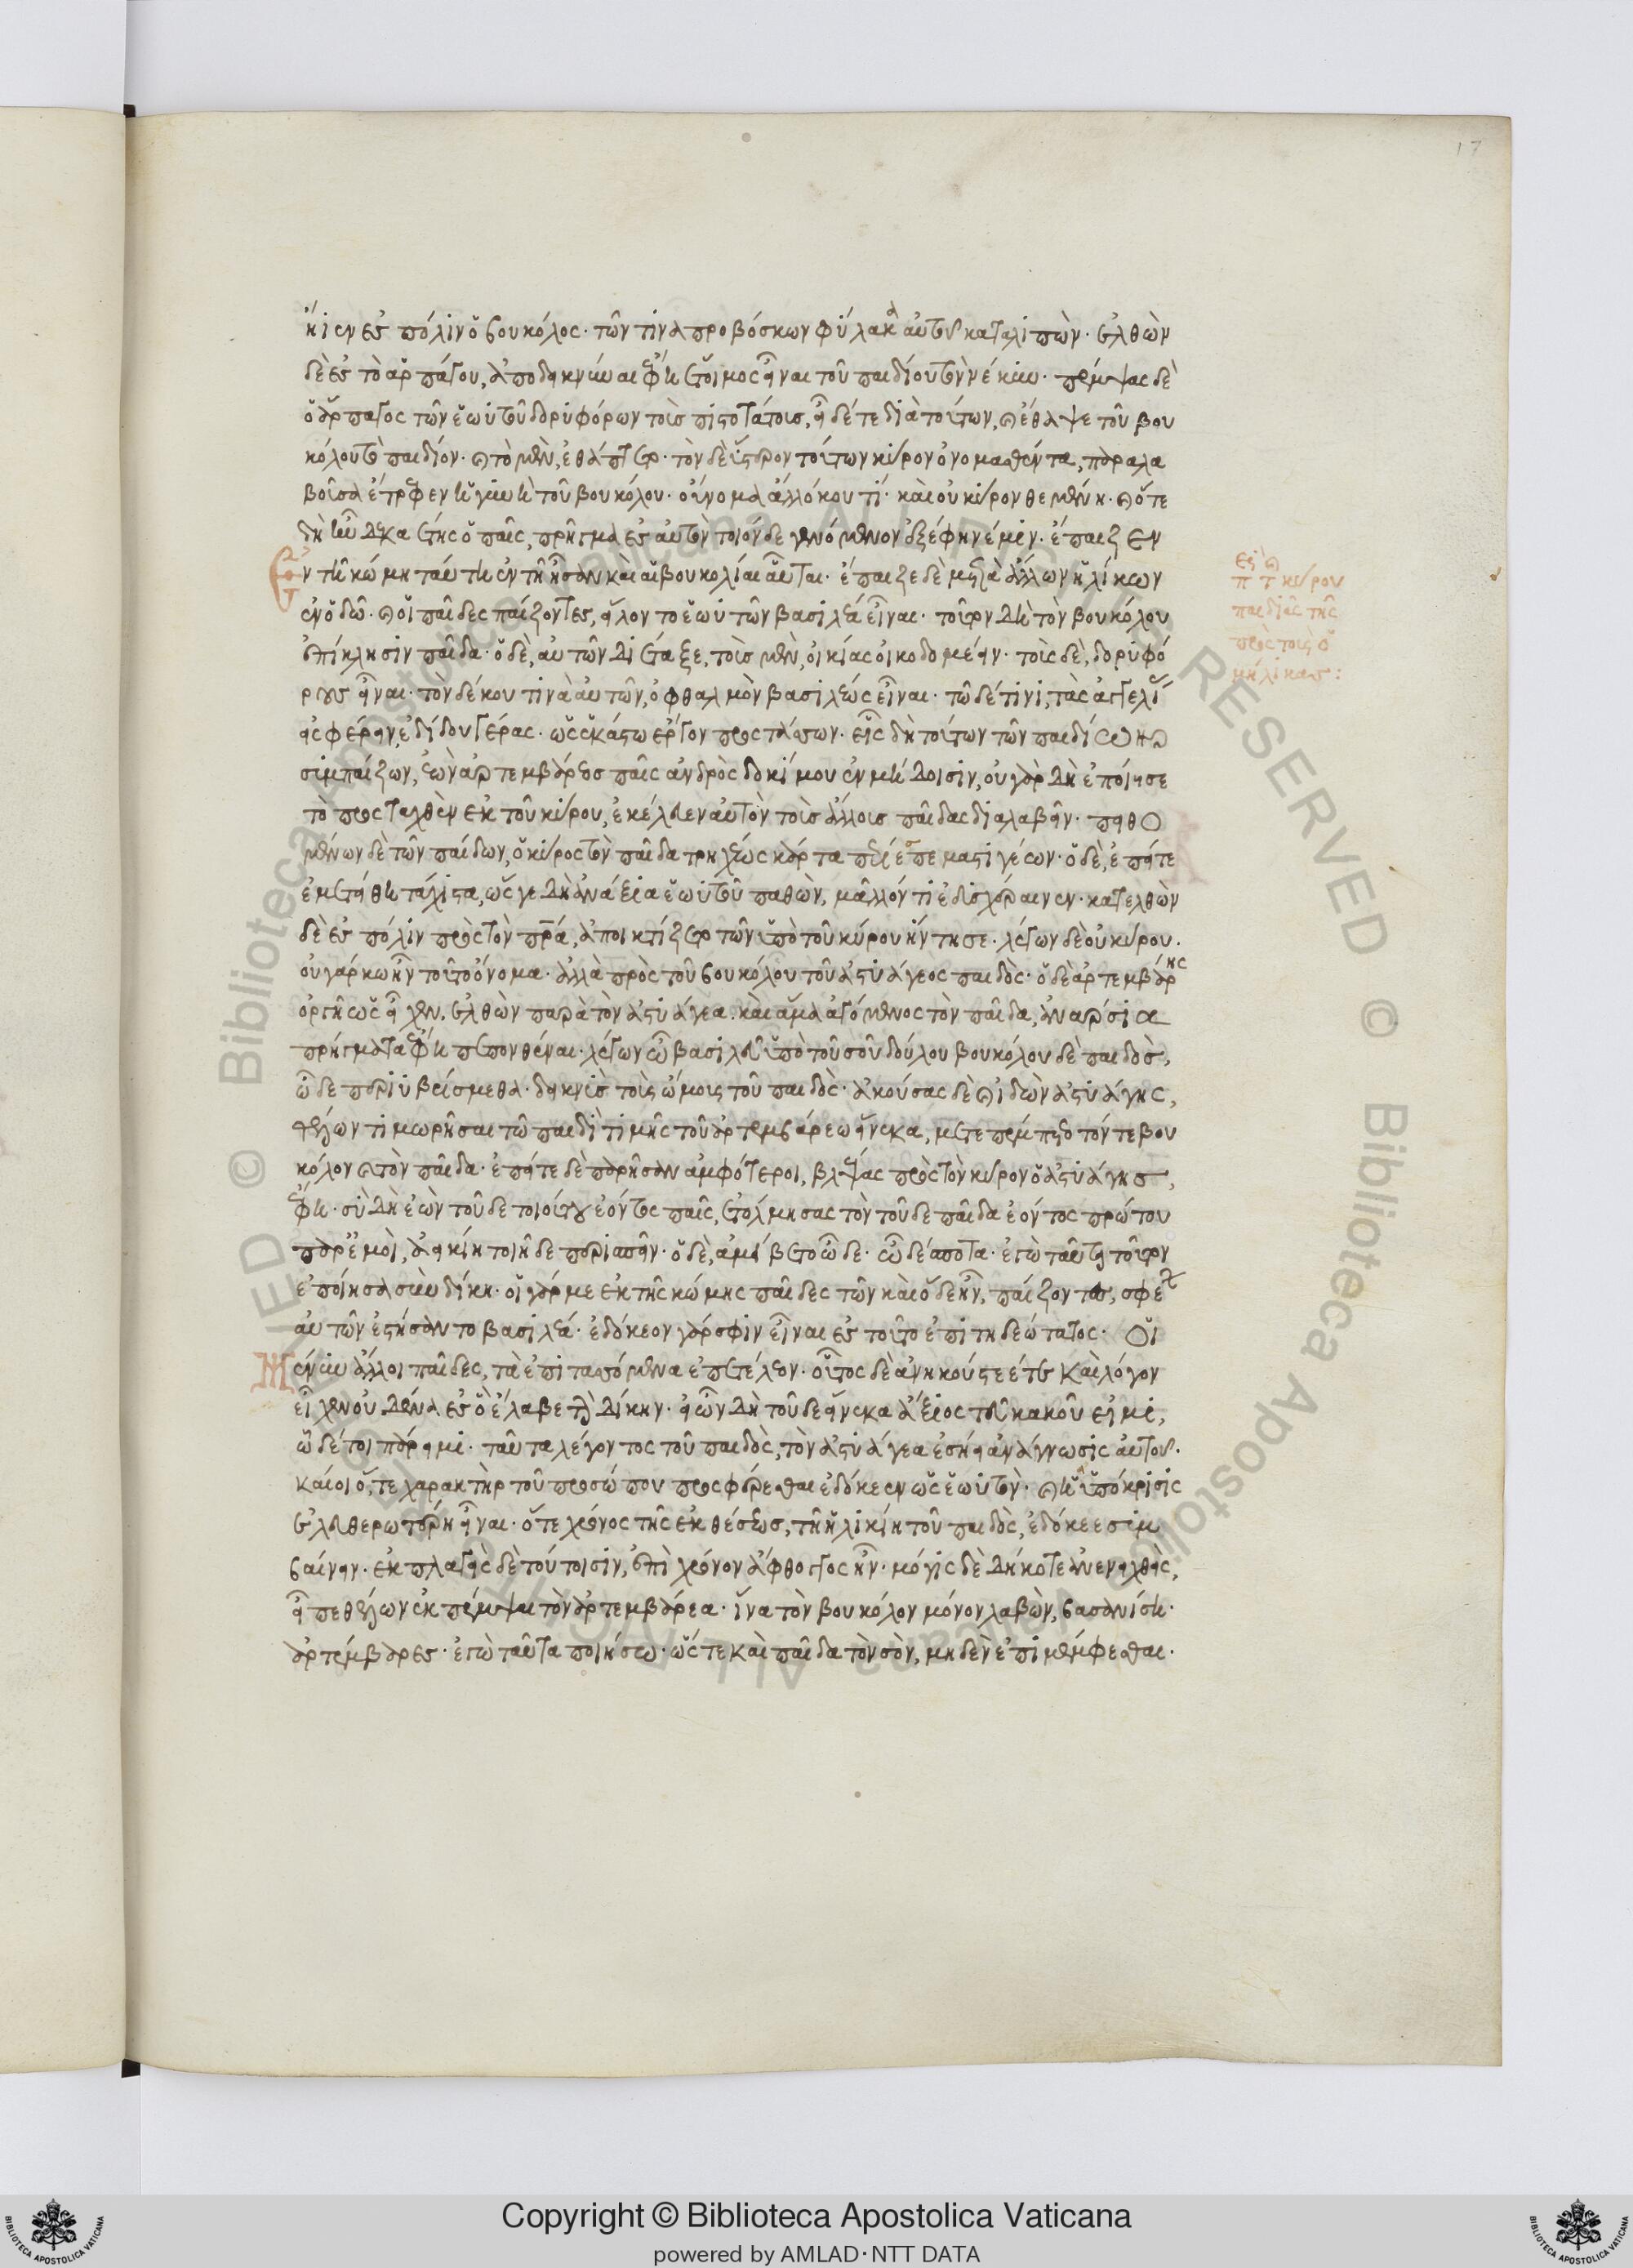 17
ἤιεν ἐς πόλιν ὁ βουκόλος· τῶν τινὰ προβόσκων φύλακα αὐτοῦ καταλιπών· ἐλθὼν
δὲ ἐς τοῦ ἁρπάγου, ἀποδεικνύναι ἔφη ἕτοιμος εἶναι τοῦ παιδίου τὸν νέκυν· πέμψας δὲ
ὁ ἅρπαγος τῶν ἑωυτοῦ δορυφόρων τοὺς πιστοτάτους, εἶδέ τε διὰ τούτων, καὶ ἔθαψε τοῦ βου
κόλου τὸ παιδίον· καὶ τὸ μὲν, ἐθάπτετο· τὸν δὲ ὕστερον τούτων κῦρον ὀνομασθέντα, παραλα
βοῦσα ἔτρεφεν ἡ γυνὴ τοῦ βουκόλου· οὔνομα ἄλλό κού τι· καὶ οὐ κῦρον θεμένη· καὶ ὅτε
δὴ ἦν δεκαέτης ὁ παῖς, πρῆγμα ἐς αὐτὸν τοιόνδε γενόμενον ἐξέφηνέ μιν· ἔπαιζεν
ἐν τῇ κώμῃ ταύτῃ ἐν τῇ ἦσαν καὶ αἱ βουκολίαι αὗται· ἔπαιζε δὲ μετὰ ἄλλων ἡλίκων
ἐν ὁδῷ· καὶ οἱ παῖδες παίζοντες, εἵλοντο ἑωυτῶν βασιλέα εἶναι· τοῦτον δὴ τὸν βουκόλου
ἐπίκλησιν παῖδα· ὁ δὲ, αὐτῶν διέταξε, τοὺς μὲν, οἰκίας οἰκοδομέειν· τοὺς δὲ, δορυφό
ρους εἶναι· τὸν δέ κού τινα αὐτῶν, ὀφθαλμὸν βασιλέως εἶναι· τῷ δέ τινι, τὰς ἀγγελίας
εἰσφέρειν, ἐδίδου γέρας· ὡς ἑκάστῳ ἔργον προστάσσων· εἷς δὴ τούτων τῶν παιδίων
συμπαίζων, ἐὼν ἀρτεμβάρεος παῖς ἀνδρὸς δοκίμου ἐν μήδοισιν, οὐ γὰρ δὴ ἐποίησε
τὸ προσταχθὲν ἐκ τοῦ κύρου, ἐκέλευεν αὐτὸν τοὺς ἄλλους παῖδας διαλαβεῖν· πειθο
μένων δὲ τῶν παίδων, ὁ κῦρος τὸν παῖδα τρηχέως κάρτα περιέσπε μαστιγέων· ὁ δὲ, ἐπείτε
ἐμετείθη τάχιστα, ὥς γε δὴ ἀνάξια ἑωυτοῦ παθὼν, μᾶλλόν τι ἐδυσχέραινεν· κατελθὼν
δὲ ἐς πόλιν πρὸς τὸν πρα, ἀποικτίζετο τῶν ὑπὸ τοῦ κύρου ἤντησε· λέγων δὲ οὐ κύρου·
οὐ γάρ κω ἦν τοῦτο οὔνομα· ἀλλὰ πρὸς τοῦ βουκόλου τοῦ ἀστυάγεος παιδὸς· ὁ δὲ ἀρτεμβάρης
ὀργῇ ὡς εἶχεν, ἐλθὼν παρὰ τὸν ἀστυάγεα· καὶ ἅμα ἀγόμενος τὸν παῖδα, ἀνάρσια
πρήγματα ἔφη πεπονθέναι· λέγων ὦ βασιλεῦ ὑπὸ τοῦ σοῦ δούλου βουκόλου δὲ παιδὸς,
ὧδε περιυβρίσμεθα· δεικνὺς τοὺς ὤμους τοῦ παιδὸς· ἀκούσας δὲ καὶ ἰδὼν ἀστυάγης,
θέλων τιμωρῆσαι τῷ παιδὶ τιμῆς τοῦ ἀρτεμβάρεω εἵνεκα, μετεπέμπετο τόν τε βου
κόλον καὶ τὸν παῖδα· ἐπείτε δὲ παρῆσαν ἀμφότεροι, βλέψας πρὸς τὸν κῦρον ὁ ἀστυάγης,
ἔφη· σὺ δὴ ἐὼν τοῦδε τοιούτου ἐόντος παῖς, ἐτόλμησας τὸν τοῦδε παῖδα ἐόντος πρώτου
παρ' ἐμοὶ, ἀεικίῃ τοιῇδε περισπεῖν· ὁ δὲ, ἀμείβετο ὧδε· ὦ δέσποτα· ἐγὼ ταῦτα τοῦτον
ἐποίησα σὺν δίκῃ· οἱ γάρ με ἐκ τῆς κώμης παῖδες τῶν καὶ ὅδε ἦν, παίζοντες, σφέων
αὐτῶν ἐστήσαντο βασιλέα· ἐδόκεον γάρ σφιν εἶναι ἐς τοῦτο ἐπιτηδεώτατος· Οἱ
μέν νυν ἄλλοι παῖδες, τὰ ἐπιτασσόμενα ἐπετέλεον· οὗτος δὲ ἀνηκούστεέ τε καὶ λόγον
εἶχεν οὐδένα ἐς ὃ ἔλαβε τὴν δίκην· εἰ ὦν δὴ τοῦδε εἵνεκα ἄξιός τευ κακοῦ εἰμι,
ὧδέ τοι πάρειμι· ταῦτα λέγοντος τοῦ παιδὸς, τὸν ἀστυάγεα ἐσήιε ἀνάγνωσις αὐτοῦ·
καί οἱ ὅ τε χαρακτὴρ τοῦ προσώπου προσφέρεσθαι ἐδόκεεν ὡς ἑωυτὸν· καὶ ἡ ὑπόκρισις
ἐλευθερωτέρη εἶναι· ὅ τε χρόνος τῆς ἐκθέσεως, τῇ ἡλικίῃ τοῦ παιδὸς, ἐδόκεε συμ
βαίνειν· ἐκπλαγεὶς δὲ τούτοισιν, ἐπὶ χρόνον ἄφθογγος ἦν· μόγις δὲ δή κοτε ἀνενειχθεὶς,
εἶπε θέλων ἐκπέμψαι τὸν ἀρτεμβάρεα· ἵνα τὸν βουκόλον μόνον λαβὼν, βασανίσῃ·
ἀρτέμβαρες· ἐγὼ ταῦτα ποιήσω· ὥστε καὶ παῖδα τὸν σὸν, μηδὲν ἐπιμέμφεσθαι·
κύρου
παιδιᾶς τῆς
πρὸς τοὺς ὁ
μήλικας:
Copyright © Biblioteca Apostolica Vaticana
powered by AMLAD·NTT DATA